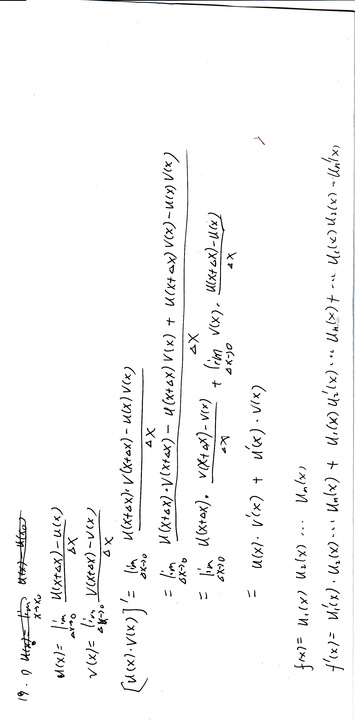 19. (1) u(x) = lim x→x₀ u(x) - u(x₀)
u(x) = lim Δx→0 (u(x+Δx) - u(x)) / Δx
v(x) = lim Δx→0 (v(x+Δx) - v(x)) / Δx
[u(x)·v(x)]' = lim Δx→0 (u(x+Δx)·v(x+Δx) - u(x)v(x)) / Δx
= lim Δx→0 (u(x+Δx)·v(x+Δx) - u(x+Δx)v(x) + u(x+Δx)v(x) - u(x)v(x)) / Δx
= lim Δx→0 u(x+Δx)· (v(x+Δx) - v(x)) / Δx + lim Δx→0 v(x)· (u(x+Δx) - u(x)) / Δx
= u(x)·v'(x) + u'(x)·v(x)
f(x) = u₁(x) u₂(x) ... uₙ(x)
f'(x) = u₁'(x)·u₂(x) ... uₙ(x) + u₁(x) u₂'(x) ... uₙ(x) + ... u₁(x) u₂(x) ... uₙ'(x)